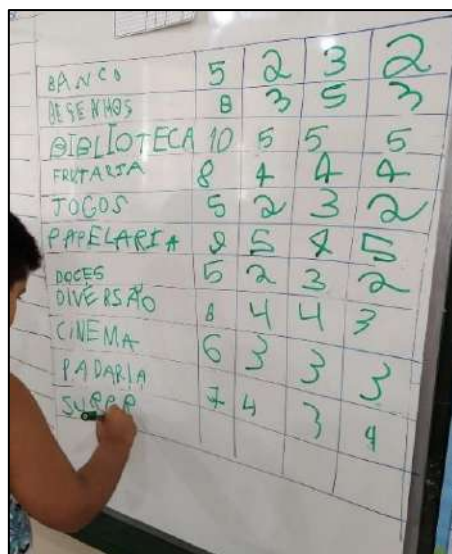 BANCO 5 2 3 2
DESENHOS 8 3 5 3
BIBLIOTECA 10 5 5 5
FRUTARIA 8 4 4 4
JOGOS 5 2 3 2
PAPELARIA 9 5 4 5
DOCES 5 2 3 2
DIVERSÃO 8 4 4 3
CINEMA 6 3 3 3
PADARIA 7 4 3 4